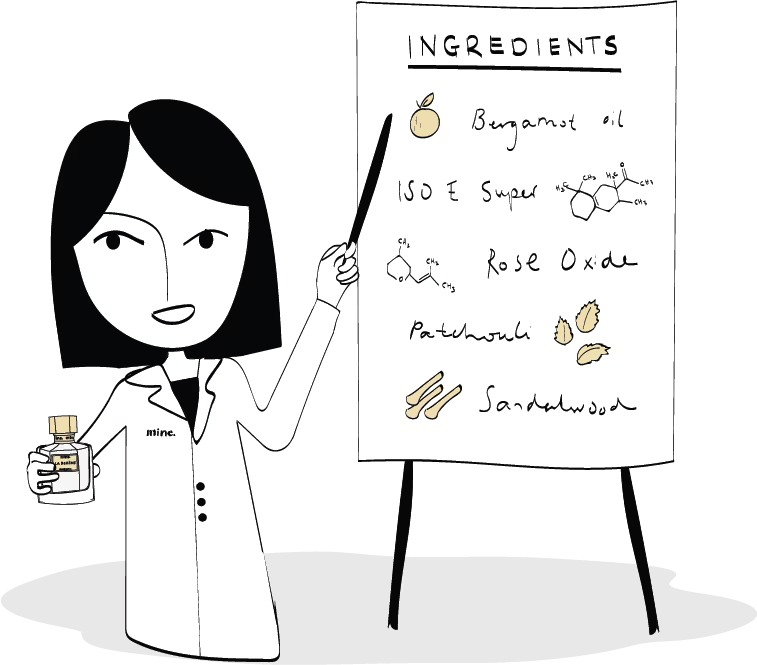 INGREDIENTS
Bergamot oil
ISO E Super
H₃C CH₃ H₃C O CH₃
CH₃
CH₃
O CH₃
CH₃
Rose Oxide
Patchouli
Sandalwood
mine.